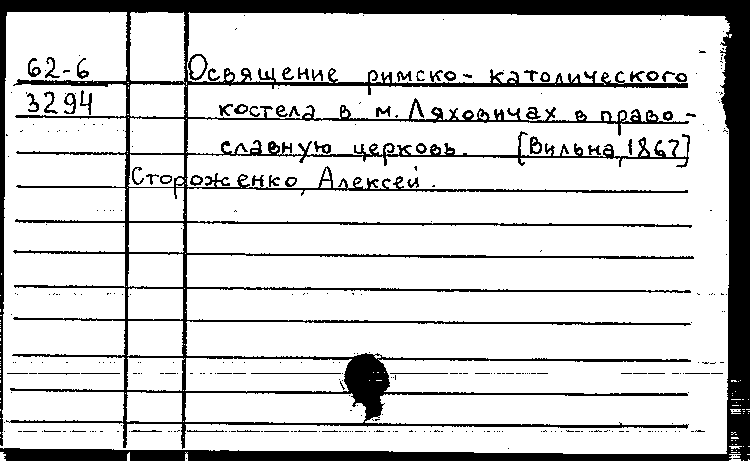 62-6 Освящение римско-католического
3294 костела в м. Ляховичах в право-
славную церковь. [Вильна, 1867]
Стороженко, Алексей.